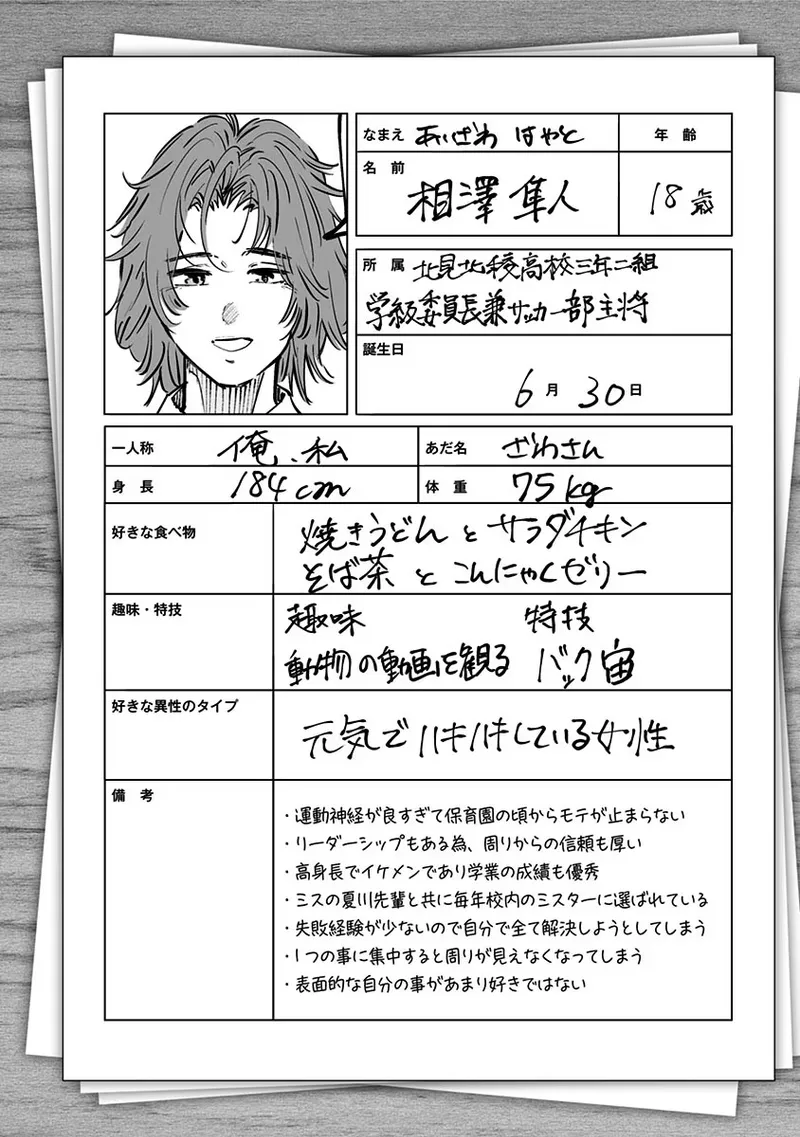 なまえ あいざわ はやと
年齢
名前
相澤 隼人
18歳
所属 北見北稜高校三年二組
学級委員長兼サッカー部主将
誕生日
6月30日
一人称 俺、私
あだ名 ざわさん
身長 184cm
体重 75kg
好きな食べ物
焼きうどんとサラダチキン
そば茶とこんにゃくゼリー
趣味・特技
趣味 特技
動物の動画を観る バック宙
好きな異性のタイプ
元気でハキハキしている女性
備考
・運動神経が良すぎて保育園の頃からモテが止まらない
・リーダーシップもある為、周りからの信頼も厚い
・高身長でイケメンであり学業の成績も優秀
・ミスの夏川先輩と共に毎年校内のミスターに選ばれている
・失敗経験が少ないので自分で全て解決しようとしてしまう
・1つの事に集中すると周りが見えなくなってしまう
・表面的な自分の事があまり好きではない